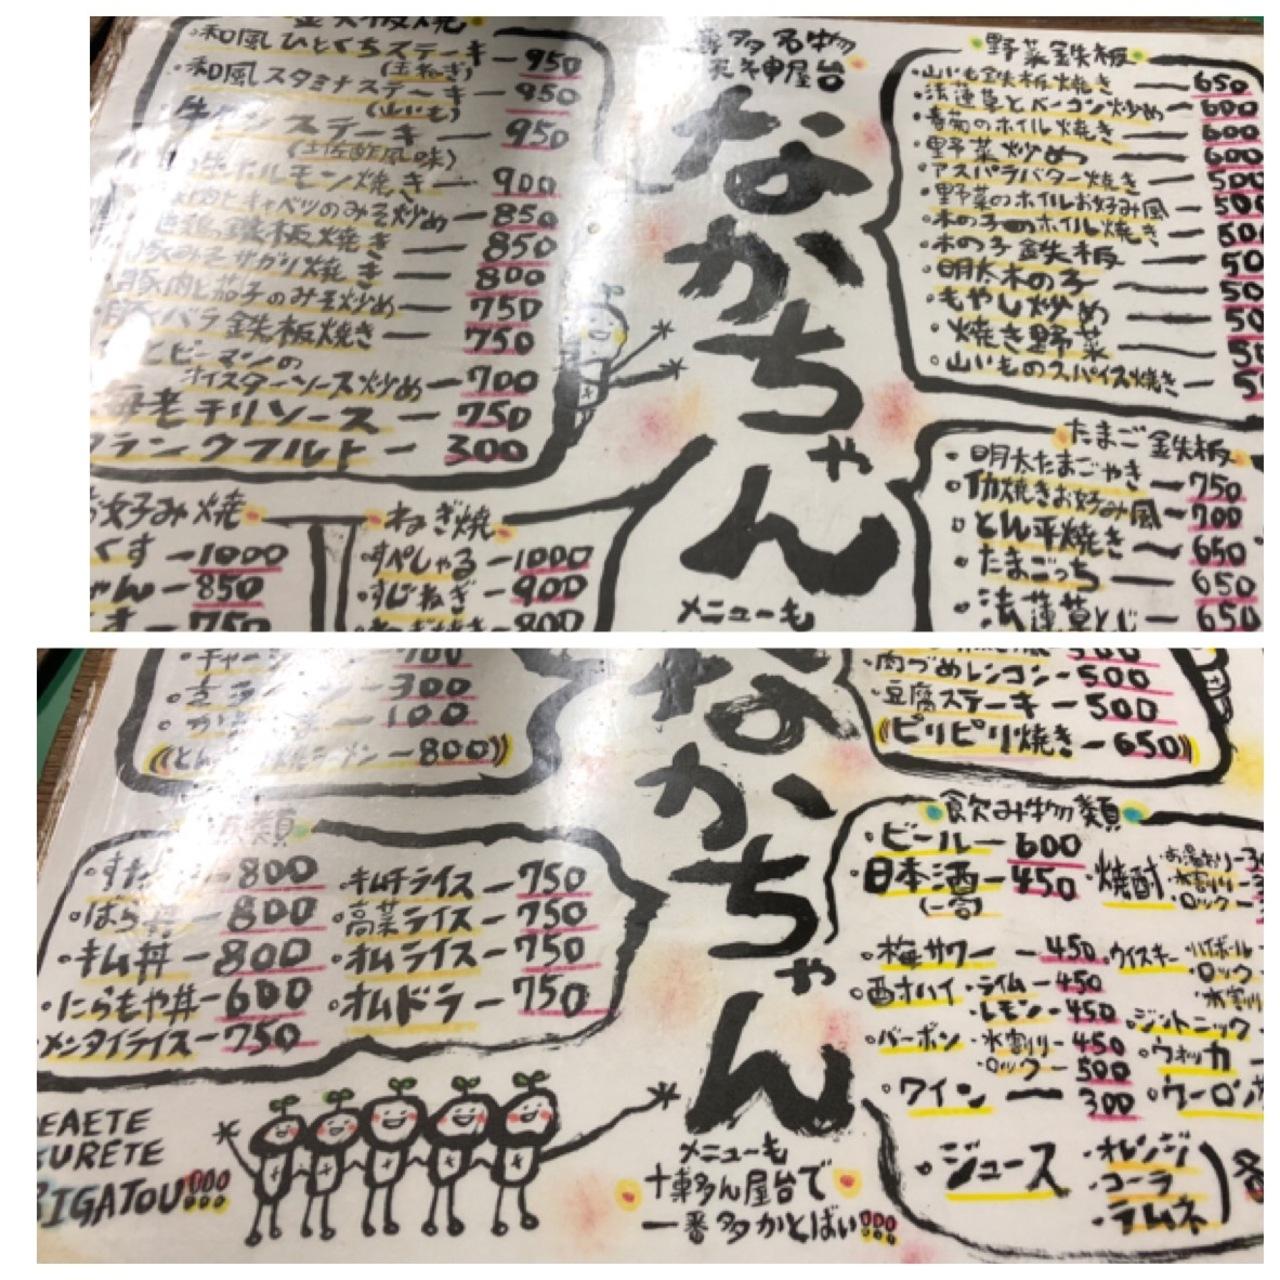 鉄板焼
・和風ひとくちステーキ ー 950
(玉ねぎ)
・和風スタミナステーキ ー 950
(山いも)
ステーキ ー 950
(土佐酢風味)
ホルモン焼き ー 900
肉とキャベツのみそ炒め ー 850
地鶏鉄板焼き ー 850
豚みそサガリ焼き ー 800
豚肉と茄子のみそ炒め ー 750
豚バラ鉄板焼き ー 750
とピーマンの
オイスターソース炒め ー 700
海老チリソース ー 750
フランクフルト ー 300
お好み焼
くす ー 1000
ゃん ー 850
す ー 750
ねぎ焼
すぺしゃる ー 1000
すじねぎ ー 900
ねぎ焼き ー 800
博多名物
天神屋台
なかちゃん
メニューも
野菜鉄板
・山いも鉄板焼き ー 650
・法蓮草とベーコン炒め ー 600
・春菊のホイル焼き ー 600
・野菜炒め ー 600
・アスパラバター焼き ー 500
・野菜のホイルお好み風 ー 500
・木の子のホイル焼き ー 50
・木の子鉄板 ー 50
・明太木の子 ー 50
・もやし炒め ー 50
・焼き野菜 ー 5
・山いものスパイス焼き ー 5
たまご鉄板
・明太たまごやき ー 750
・イカ焼きお好み風 ー 700
・とん平焼き ー 650
・たまごっち ー 650
・法蓮草とじ ー 650
ー 700
ー 300
ー 100
ラーメン ー 800
類
ー 800
・ばら丼 ー 800
・キム丼 ー 800
・にらもや丼 ー 600
メンタイライス ー 750
・キムチライス ー 750
・高菜ライス ー 750
・オムライス ー 750
・オムドラ ー 750
EAETE
URETE
RIGATOU!!!
なかちゃん
メニューも
博多ん屋台で
一番多かとばい!!!
500
肉づめレンコン ー 500
・豆腐ステーキ ー 500
ピリピリ焼き ー 650
飲み物類
・ビール ー 600
・日本酒 ー 450
(一合)
・焼酎
・お湯わり ー 3
・水割り ー
・ロック ー
・梅サワー ー 450
・ウイスキー
・ハイボール
・ロック
・水割り
・酎ハイ ・ライム ー 450
・レモン ー 450
・ジントニック
・バーボン ・水割り ー 450
・ロック ー 500
・ウォッカ
・ワイン ー 300
・ウーロン
・ジュース
・オレンジ
・コーラ
・ラムネ
各